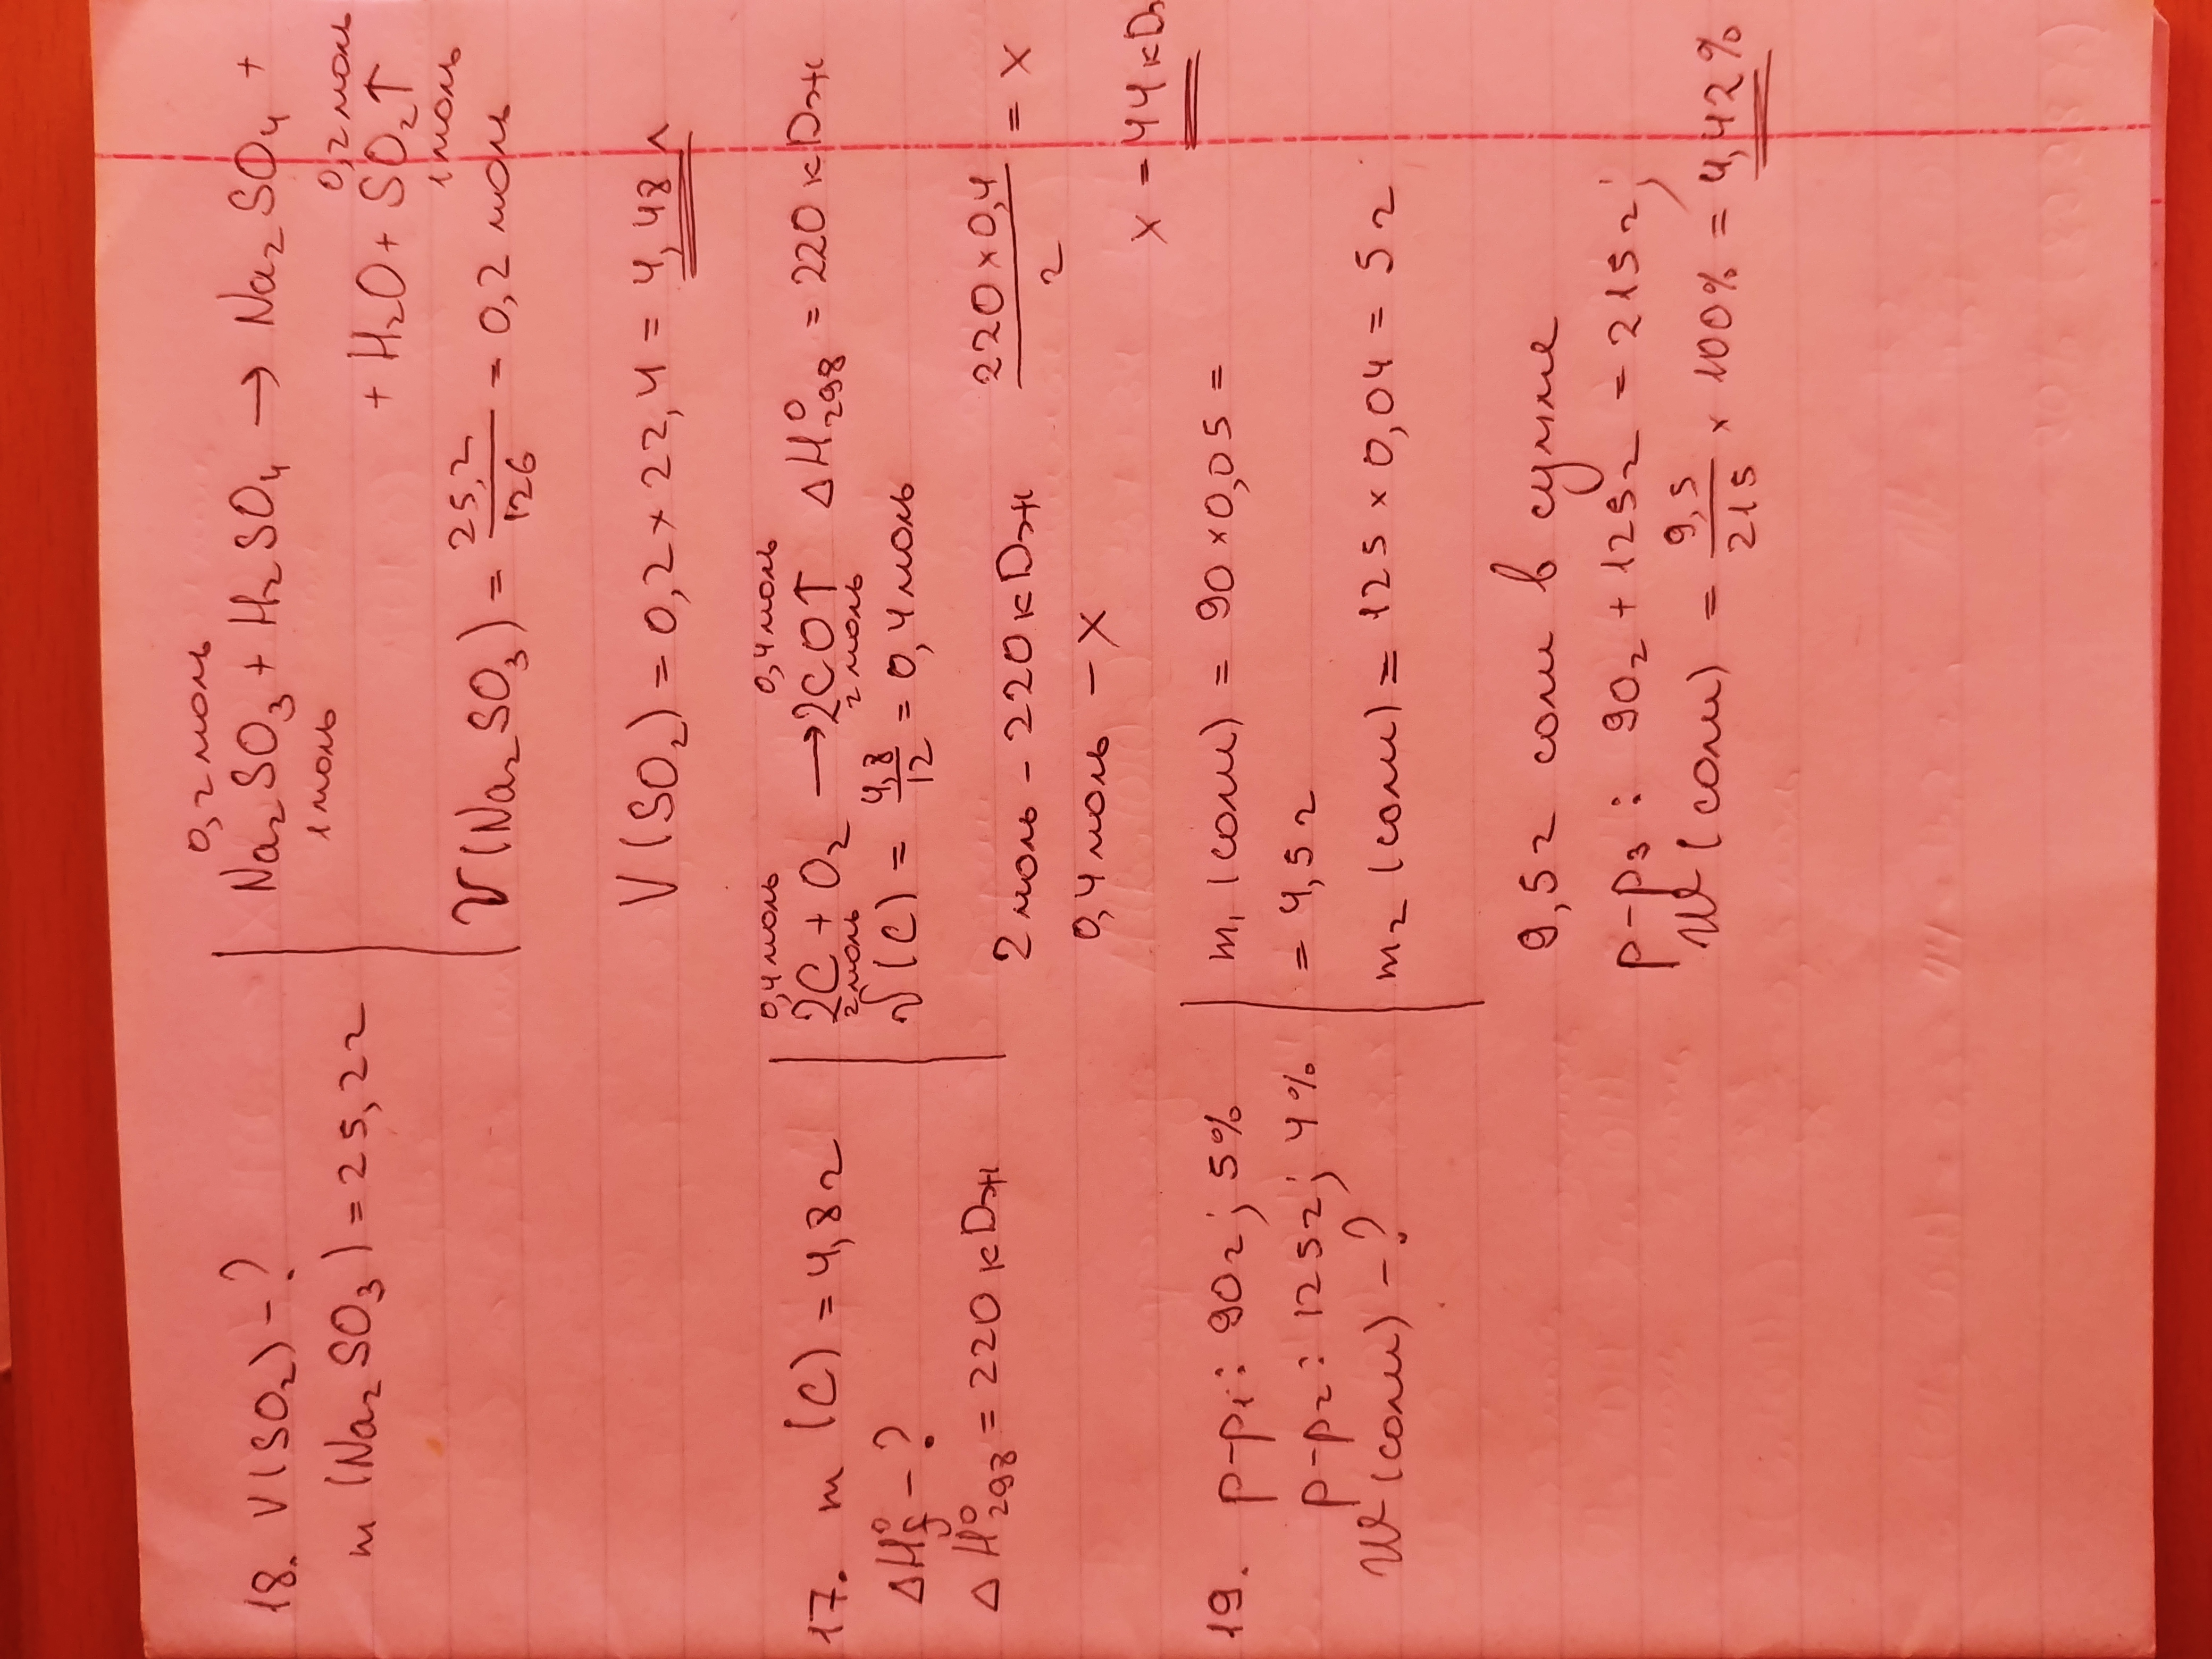 18. V(SO₂) – ?
m(Na₂SO₃) = 25,2г
0,2 моль
Na₂SO₃ + H₂SO₄ → Na₂SO₄ +
1 моль
0,2 моль
+ H₂O + SO₂↑
1 моль
ν(Na₂SO₃) = 25,2/126 = 0,2 моль
V(SO₂) = 0,2 × 22,4 = 4,48 л
17. m(C) = 4,8г
ΔH°f – ?
ΔH°₂₉₈ = 220 кДж
0,4 моль 0,4 моль
2C + O₂ → 2CO↑ ΔH°₂₉₈ = 220 кДж
2 моль 2 моль
ν(C) = 4,8/12 = 0,4 моль
2 моль – 220 кДж 220 × 0,4/2 = x
0,4 моль – x
x = 44 кДж
19. р-р₁: 90г; 5%
р-р₂: 125г; 4%
W(соли) – ?
m₁(соли) = 90 × 0,05 =
= 4,5г
m₂(соли) = 125 × 0,04 = 5г
9,5г соли в сумме
р-р₃: 90г + 125г = 215г;
W(соли) = 9,5/215 × 100% = 4,42%